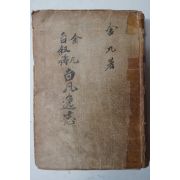 金九著
金九
自敍傳
白凡逸志